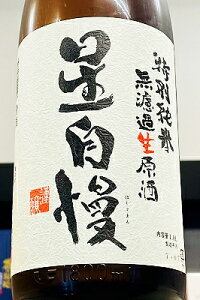 特別純米
無濾過生原酒
星自慢
ほしじまん